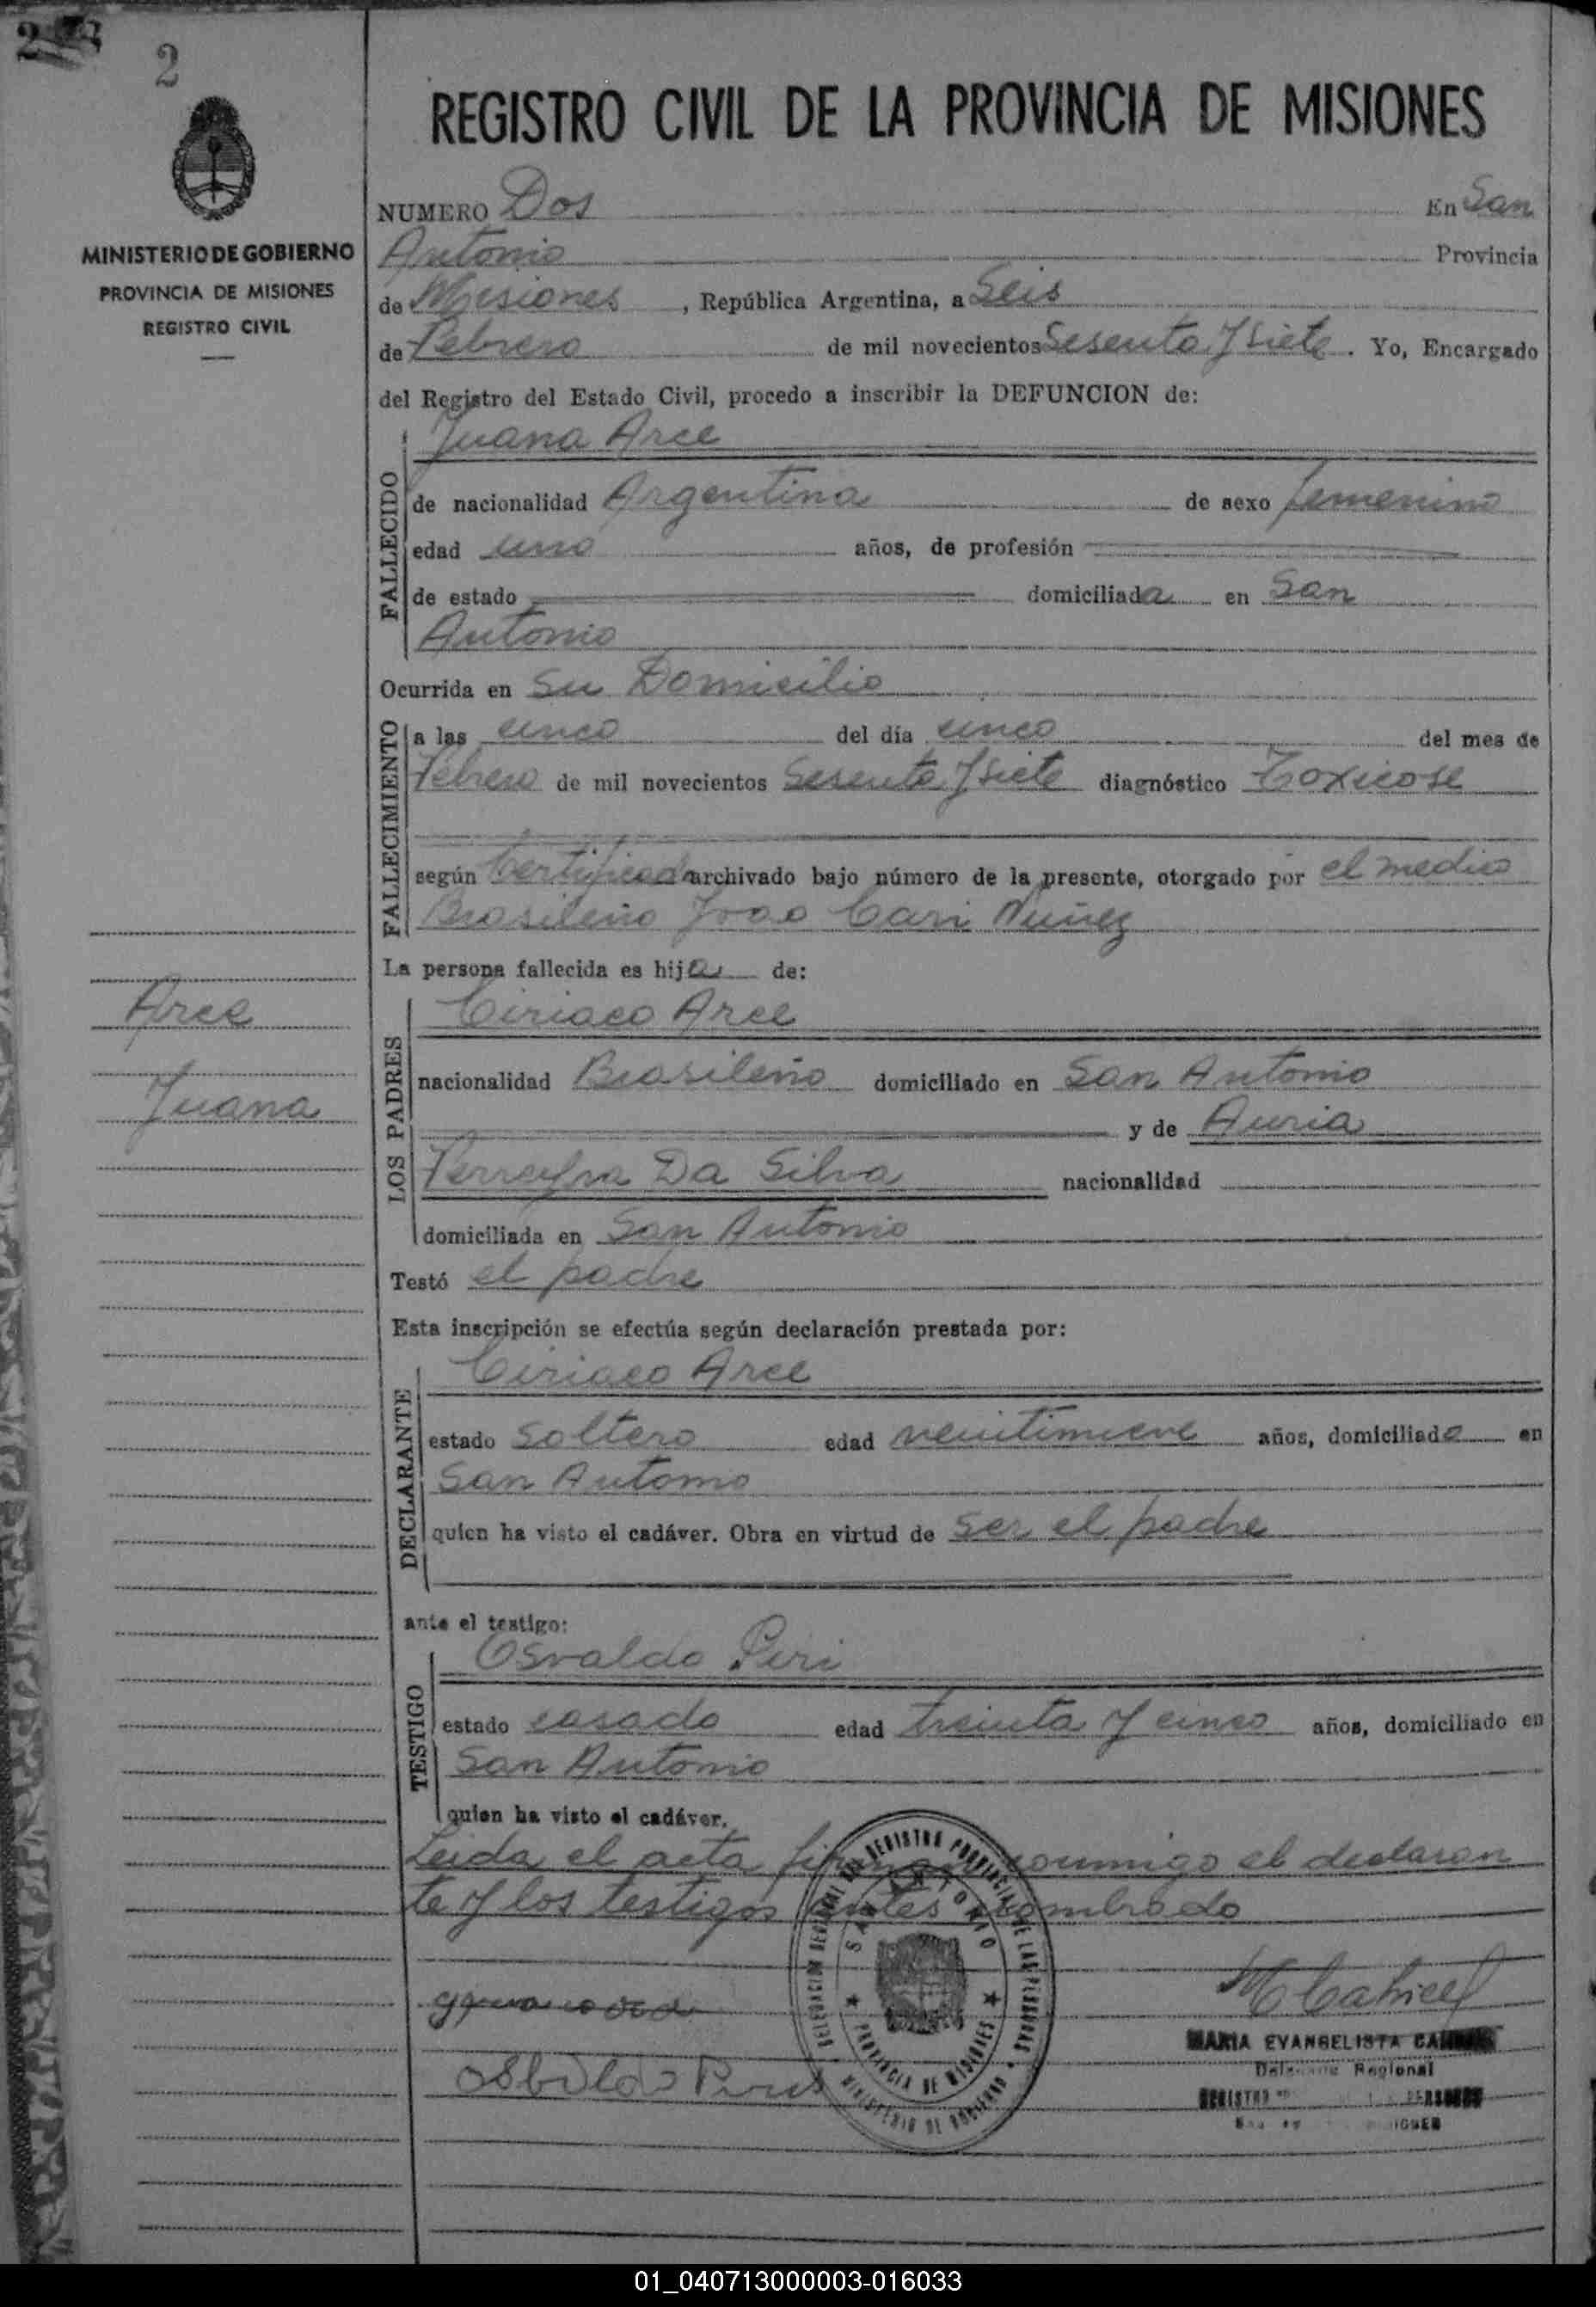 2
REGISTRO CIVIL DE LA PROVINCIA DE MISIONES
MINISTERIO DE GOBIERNO
PROVINCIA DE MISIONES
REGISTRO CIVIL
NUMERO Dos En San
Antonio Provincia
de Misiones, República Argentina, a Seis
de Febrero de mil novecientos Sesenta y siete. Yo, Encargado
del Registro del Estado Civil, procedo a inscribir la DEFUNCION de:
FALLECIDO
Juana Arce
de nacionalidad Argentina de sexo femenino
edad uno años, de profesión
de estado domiciliada en San
Antonio
Ocurrida en su Domicilio
FALLECIMIENTO
a las cinco del día cinco del mes de
Febrero de mil novecientos Sesenta y siete diagnóstico Toxicose
según Certificado archivado bajo número de la presente, otorgado por el medico
Brasileño Joao Cari Nuñez
La persona fallecida es hija de:
Arce
Juana
LOS PADRES
Ciriaco Arce
nacionalidad Brasileño domiciliado en San Antonio
y de Auria
Ferreyra Da Silva nacionalidad
domiciliada en San Antonio
Testó el padre
Esta inscripción se efectúa según declaración prestada por:
DECLARANTE
Ciriaco Arce
estado Soltero edad veintinueve años, domiciliado en
San Antonio
quien ha visto el cadáver. Obra en virtud de ser el padre
ante el testigo:
TESTIGO
Osvaldo Piri
estado casado edad treinta y cinco años, domiciliado en
San Antonio
quien ha visto el cadáver.
Leida el acta firman conmigo el declaran
te y los testigos antes nombrado
SAN ANTONIO
PROVINCIA DE MISIONES
MINISTERIO DE GOBIERNO
MARIA EVANGELISTA
Regional
01_040713000003-016033